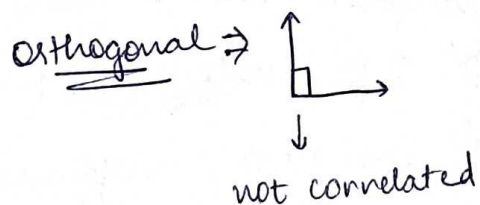 orthogonal ⇒
not correlated